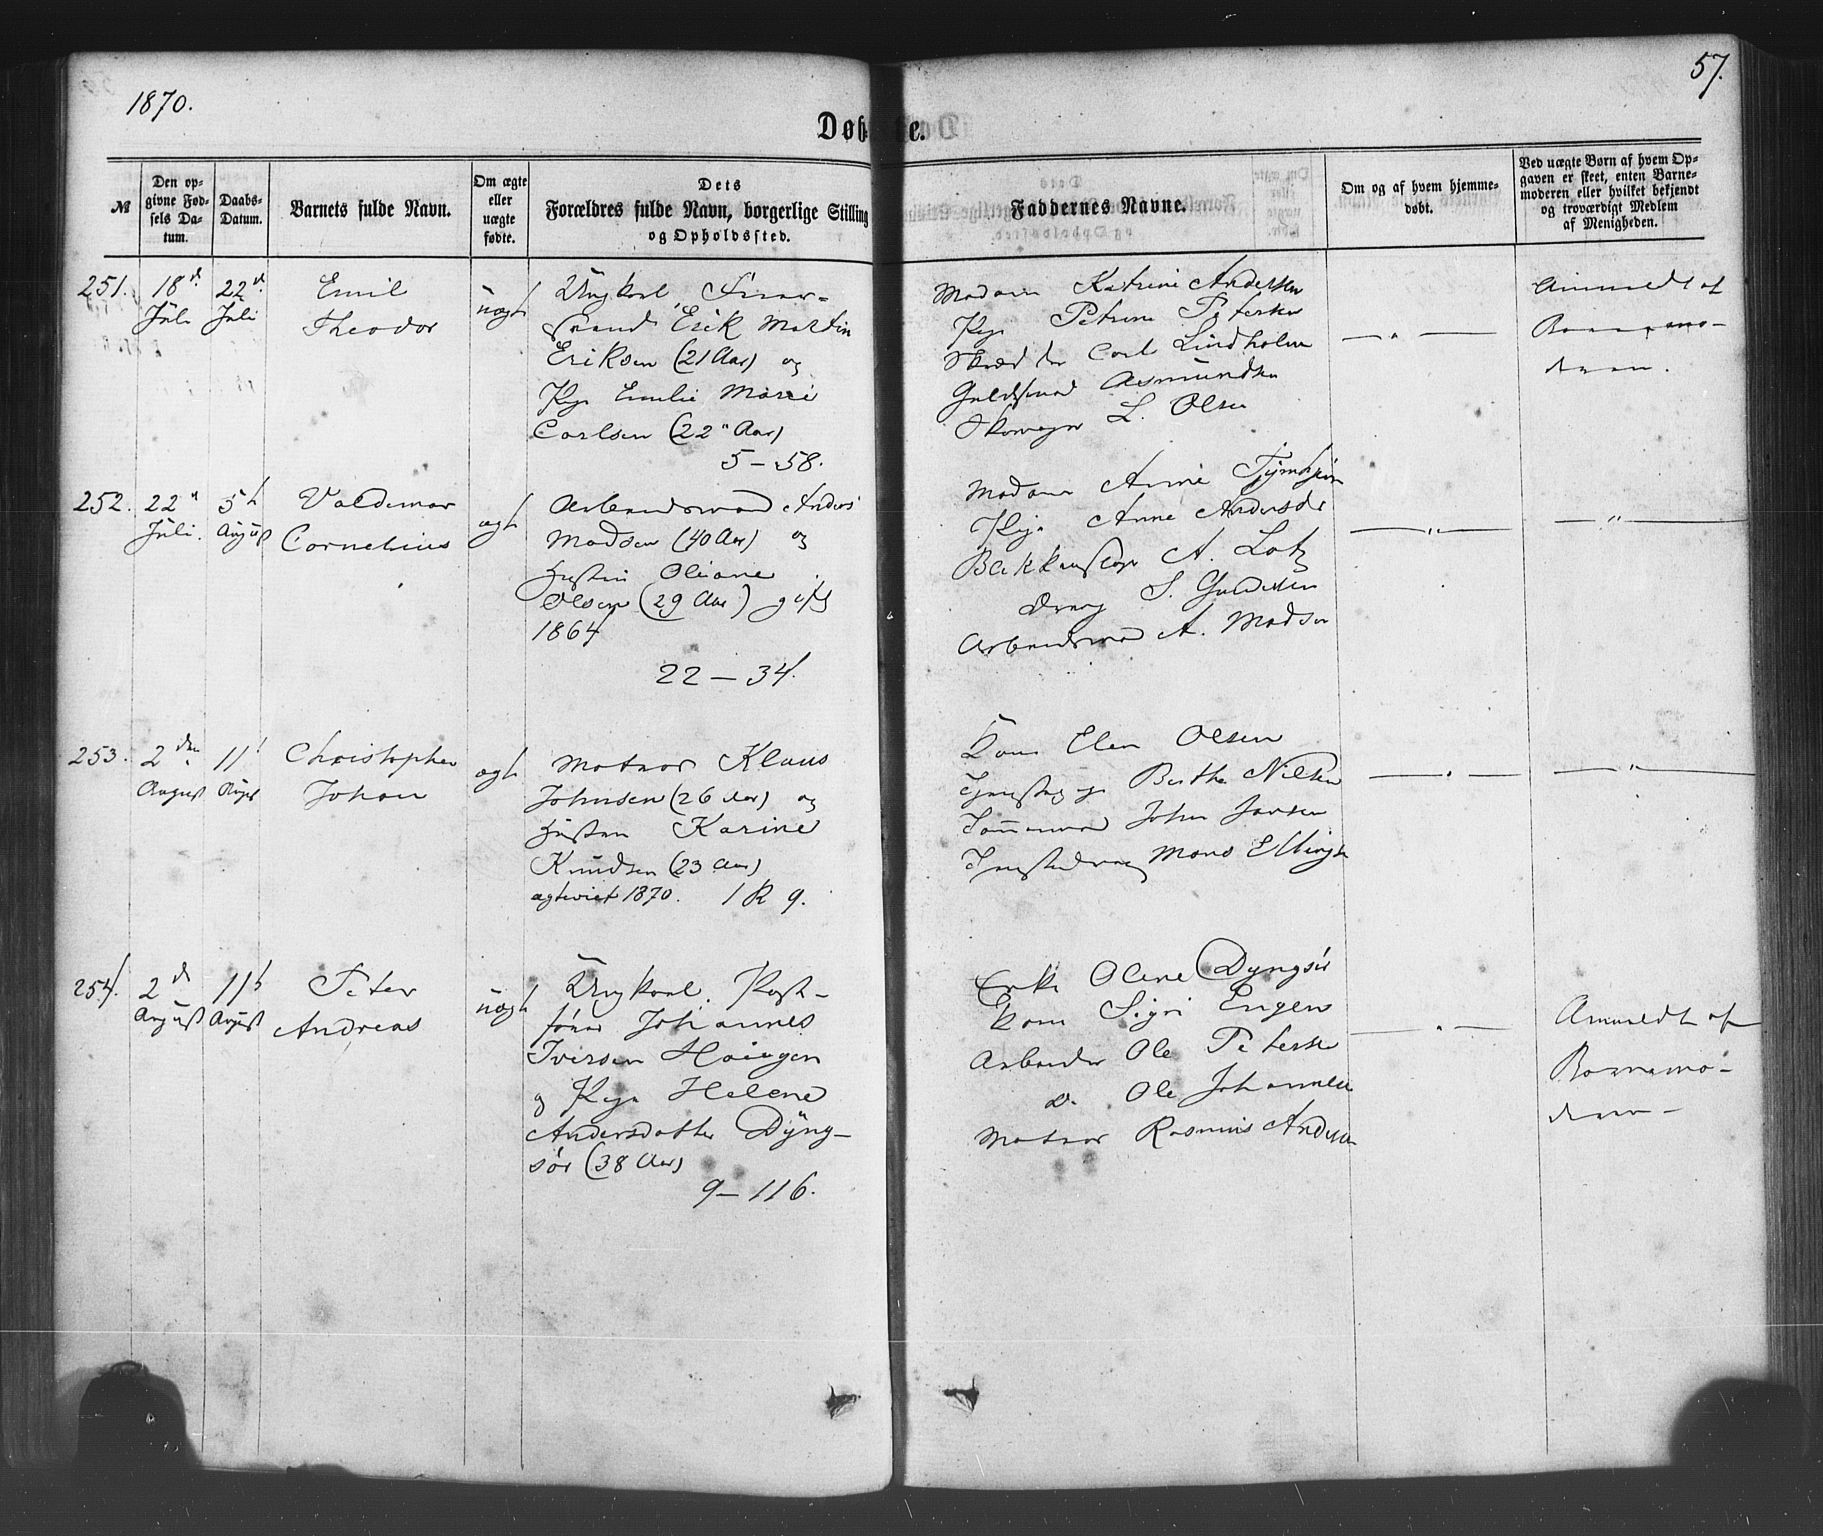 1870.
57.
Døbte.
№
Den opgivne Fødsels Datum.
Daabs-Datum.
Barnets fulde Navn.
Om ægte eller uægte fødte.
Dets Forældres fulde Navn, borgerlige Stilling og Opholdssted.
Faddernes Navne.
Om og af hvem hjemmedøbt.
Ved uægte Børn af hvem Opgaven er skeet, enten Barnemoderen eller hvilket bekjendt og troværdigt Medlem af Menigheden.
251.
18d Juli
22d Juli
Emil
Theodor
uægt
Ungkarl
Erik Martin
Eriksen (21 Aar) og
Pige Emilie Marie
Carlsen (22 Aar)
5 - 58.
Madam Katrine Andersen
Pige Petrine Petersen
Carl Lindholm
Guldsmed Asmundsen
Skomager L. Olsen
— " —
Anmeldt af
Barnemo-
deren.
252.
22 Juli.
5t August
Valdemar
Cornelius
ægt
Arbeidsmand Anders
Madsen (40 Aar) og
Hustru Oliane
Olsen (29 Aar) gift
1864
22 - 34.
Madam Anne
Pige Anne Andersdr
A. Lotz
Dreng S. Guldesen
Arbeidsmand A. Madsen
— " —
— " —
253.
2den August
11t August
Christopher
Johan
ægt
Matros Klaus
Johnsen (26 Aar) og
Hustru Karine
Knudsen (23 Aar)
ægteviet 1870. 1 R 9.
Kone Elen Olsen
Tjenestepige Berthe Nilsen
Tømmermand John Jansen
Tjenestedreng Mons Ellings
— " —
— " —
254.
2d August
11t August
Peter
Andreas
uægt
Ungkarl. Post-
fører Johannes
Iversen
og Pige Helene
Andersdatter Dyng-
sör (38 Aar)
9 - 116.
Enke Olene Dyngsör
Kone Sigri Engen
Arbeider Ole Petersen
do Ole Johannesen
Matros Rasmus Andersen
— " —
Anmeldt af
Barnemo-
deren